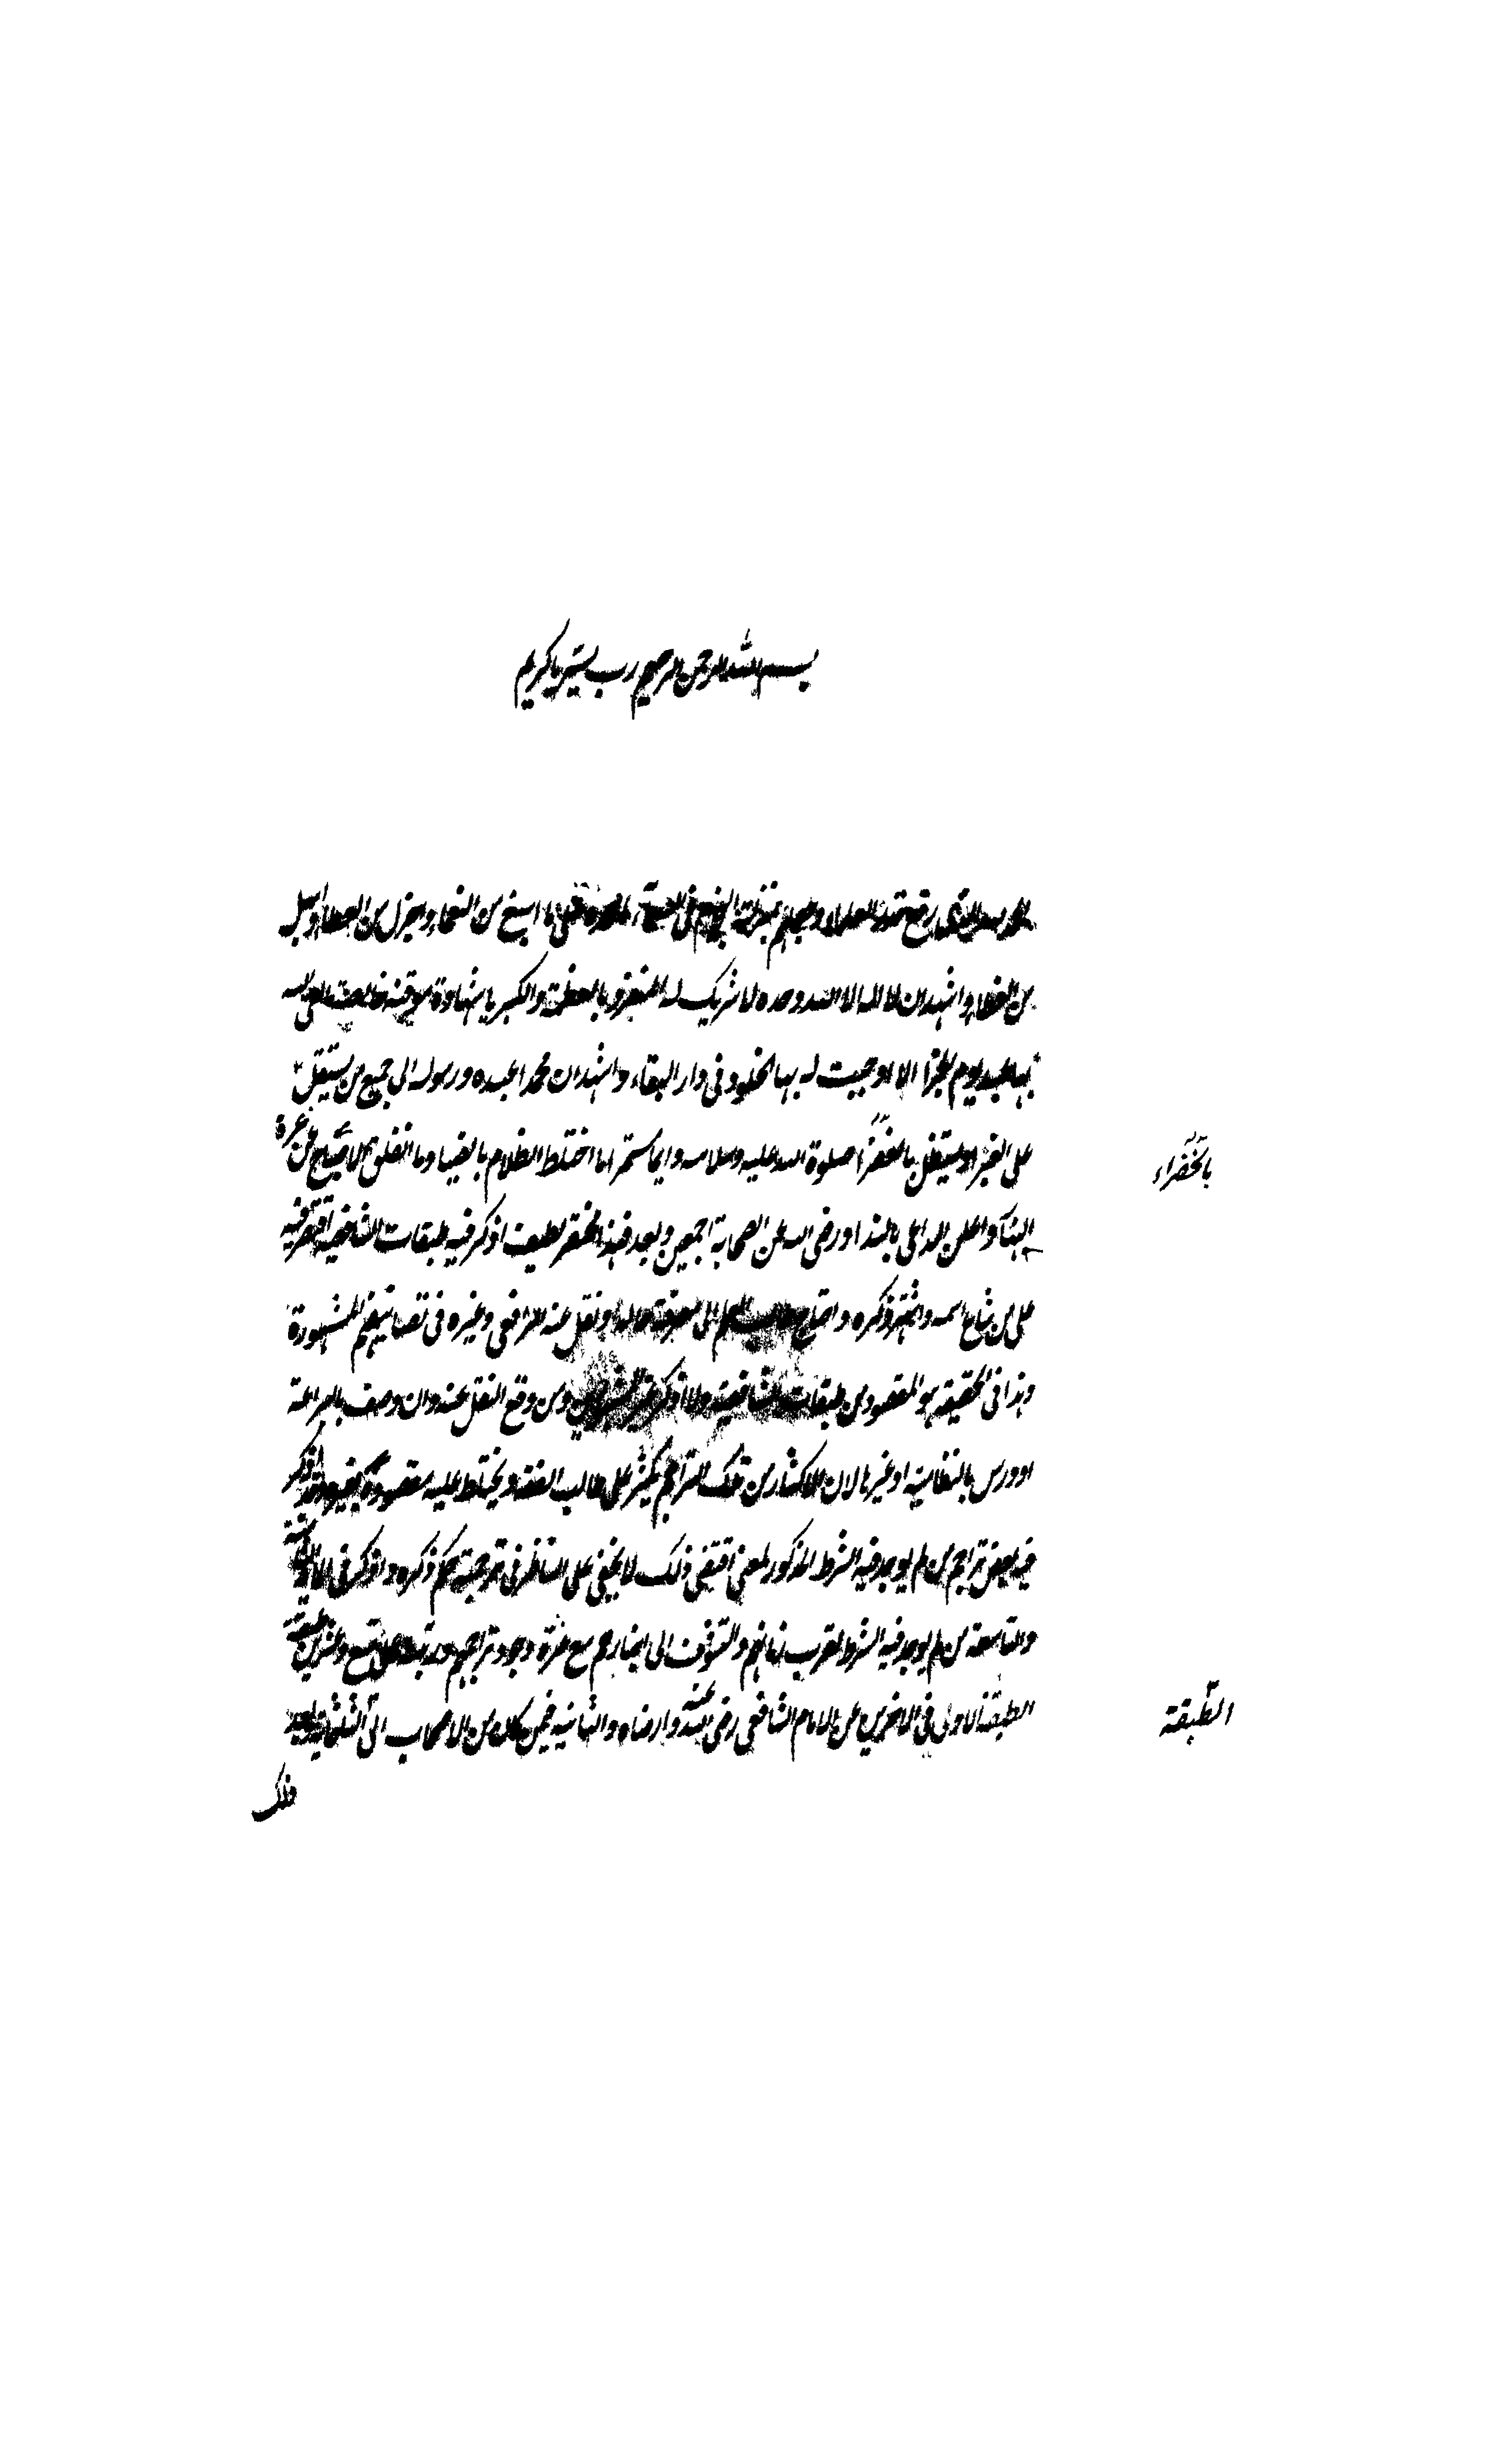 بسم الله الرحمن الرحيم رب يسر يا كريم
الحمد لله الذي رفع قدر العلماء وجعلهم بمنزلة النجوم في السماء احمده على ما اسبغ من النعماء واجزل من العطاء واسبل
من الغطاء واشهد ان لا اله الا الله وحده لا شريك له المنفرد بالعظمة والكبريا شهادة موقنة خالصة
بها عبد يوم الجزا الا اوجبت له بها الخلود في دار البقاء واشهد ان محمدا عبده ورسوله الى جميع من يستقل
على الغبرا ويستظل بالخضرا صلوة الله عليه وسلامه دايما مستمرا ما اختلط الظلام بالضيا وما انفلق الاصباح عن غرة
البنا واعلن الداعي بالندا ورضى الله عن الصحابة اجمعين وبعد فهذا مختصر لطيف اذكر فيه طبقات الشافعية اقتصر فيه
على من شاع اسمه واشتهر ذكره واحتاج طالب العلم الى معرفة حاله او نقل عنه الرافعي وغيره في تصانيفهم المشهورة
وهذا في الحقيقة هو المقصود من طبقات الشافعية ولا اذكر غير المشهورين ومن وقع النقل عنه وان وصف بالبراعة
او درس بالنظامية او غيرها لان الاكثار من تلك التراجم يكثر على طالب الفقه ويختلط عليه مقصوده بغيره وقد اذكر
فيه بعض تراجم من لم يوجد فيه الشرط المذكور لمعنى اقتضى ذلك لا يخفى على الناظر في ترجمة كم ذكره واذكر في
والتاسعة من لم يوجد فيه الشرط لقرب زمانهم والتشوف الى اخبارهم مع عزة وجود تراجمهم ورتبته على تسع وعشرين طبقة
الطبقة الاولى في الاخرين عن الامام الشافعي رضى الله عنه وارضاه والثانية فيمن كان من الاصحاب الى الثلثماية
بالخضراء
الطبقة